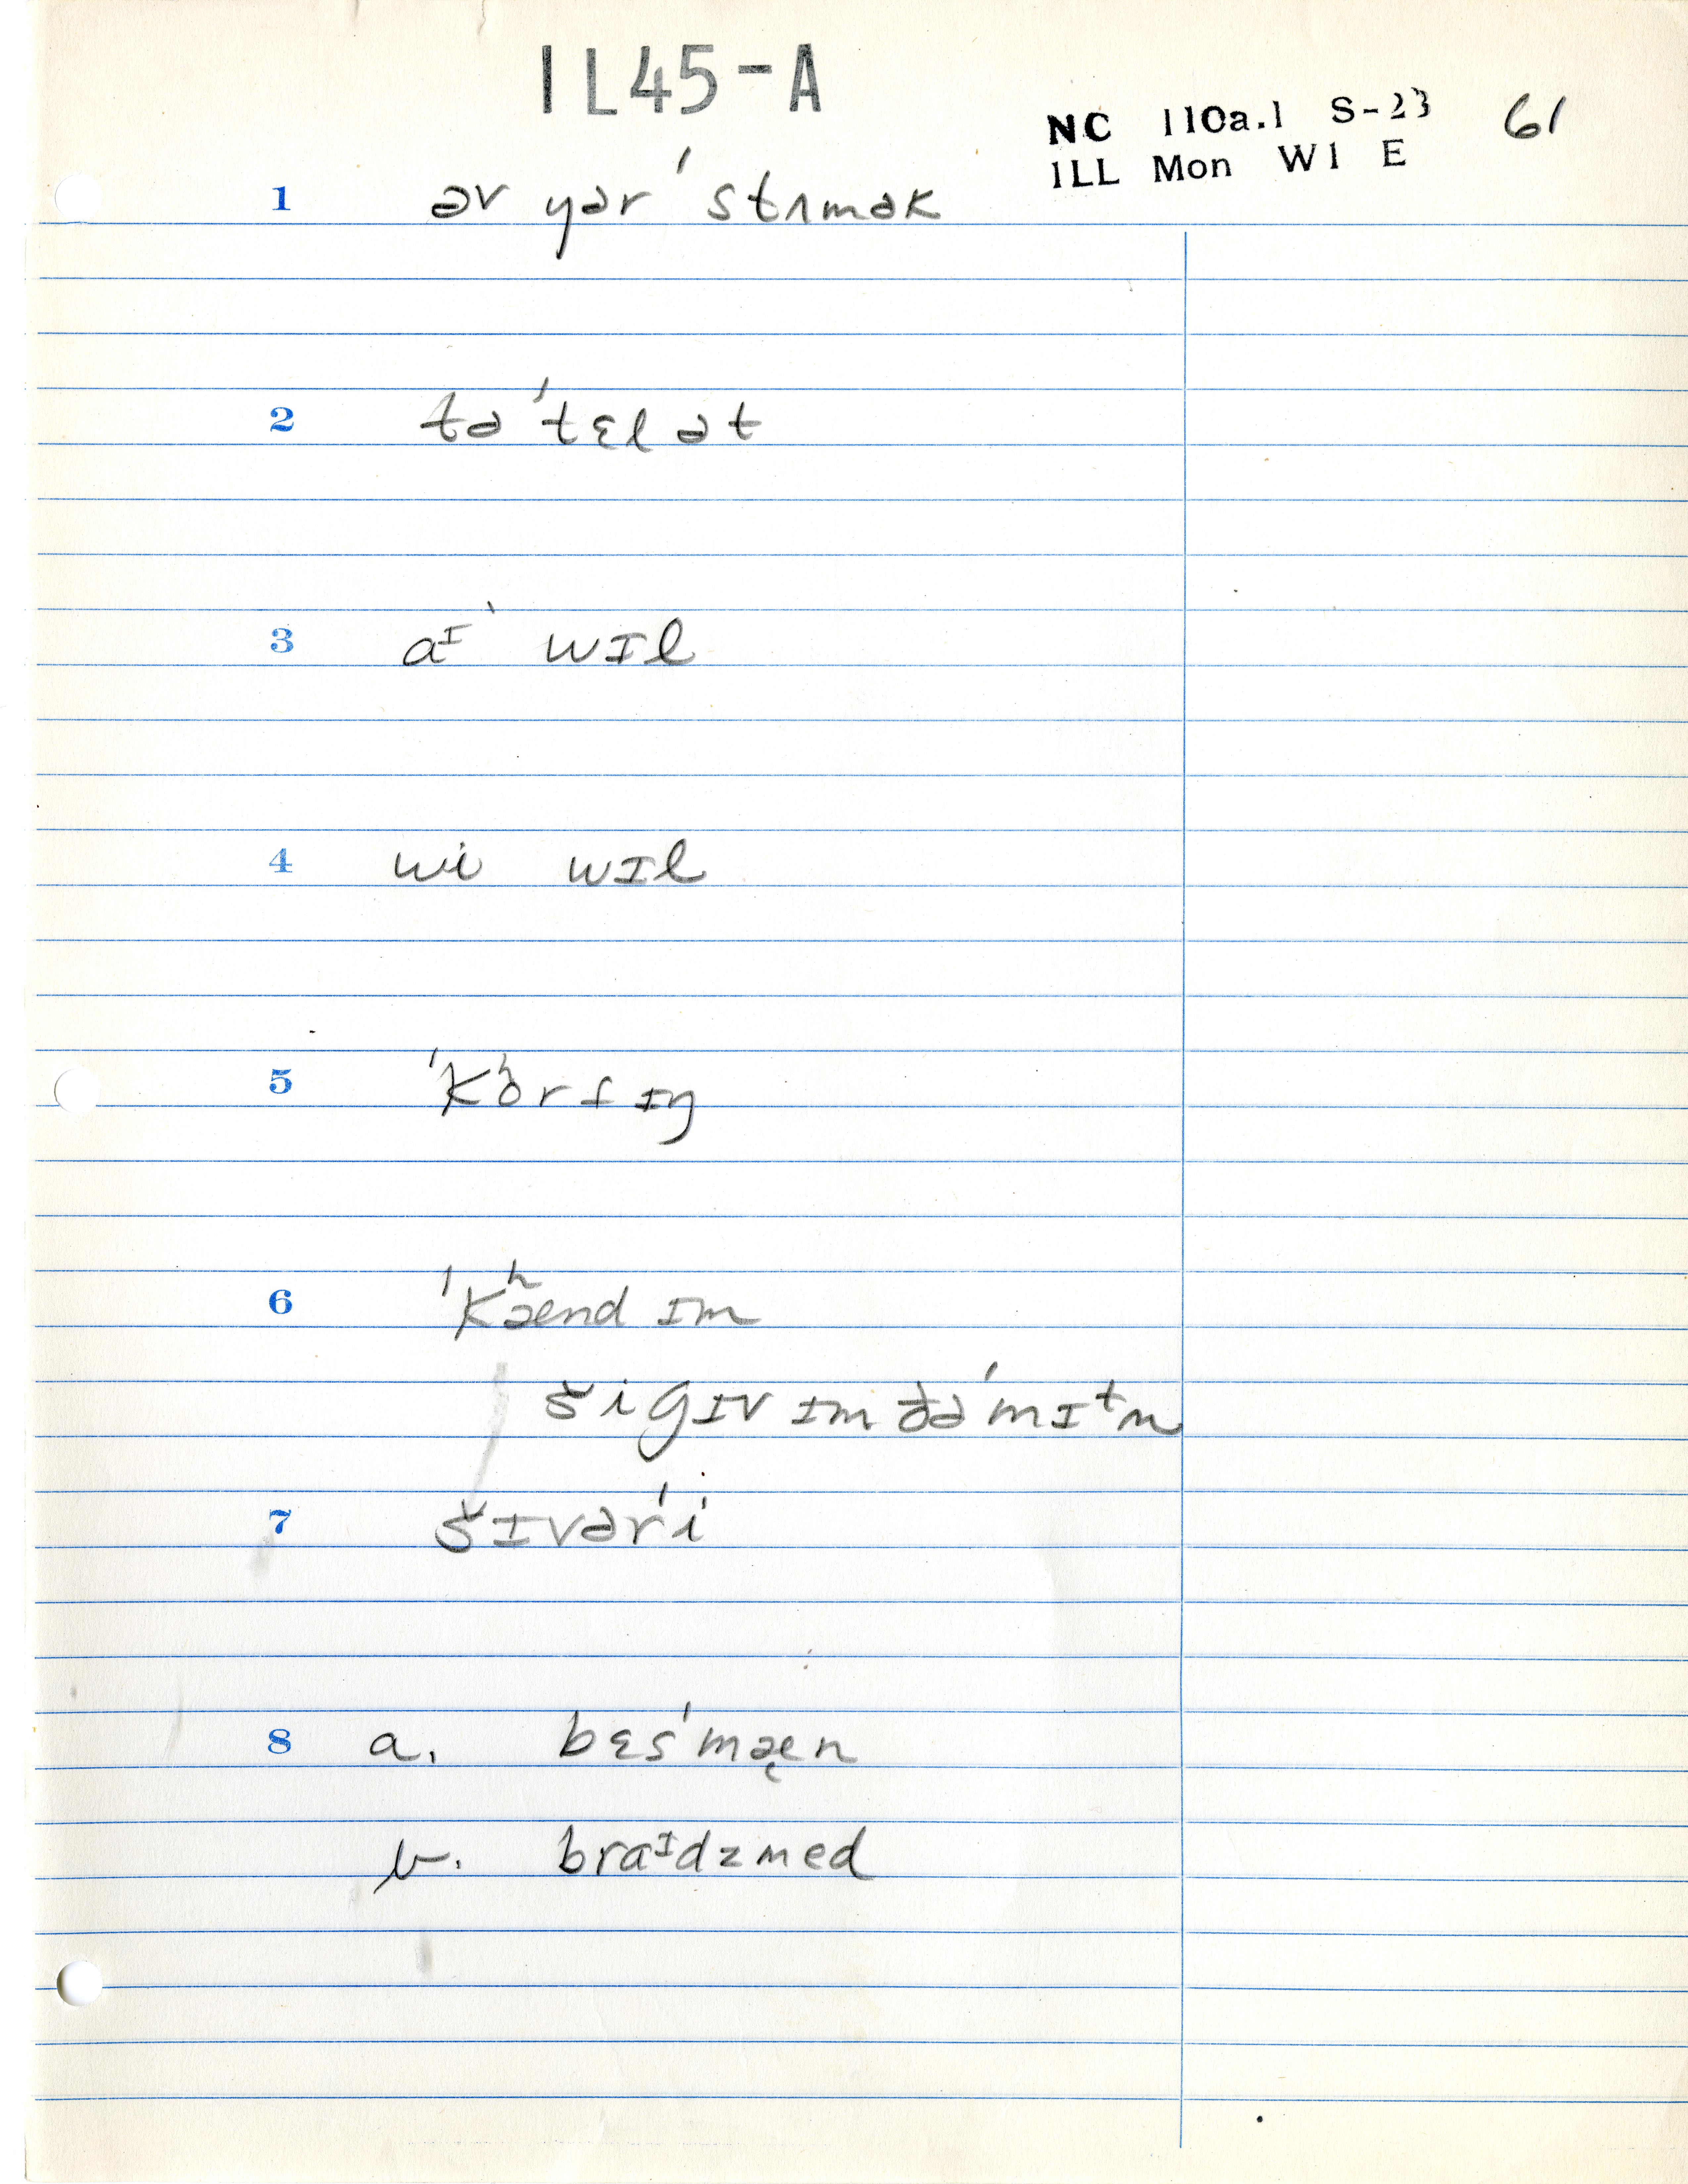 IL45-A
NC 110a.1 S-23 61
ILL Mon W1 E
1 əv yər ˈstʌmək
2 tə ˈtɛl ət
3 aᶦ ˈ wɪl
4 wi wɪl
5 ˈkʰɔrfɪŋ
6 ˈkʰænd ɪm
ši gɪv ɪm ðə ˈmɪᵗn
7 šɪvər ˈi
8 a. bɛs ˈmæ̨n
b. braᶦdzmed